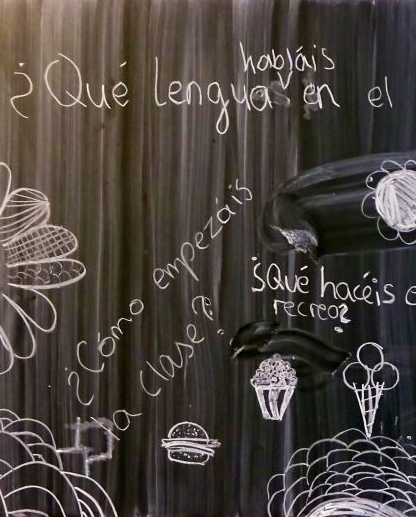 ¿Qué lengua habláis en el
¿Cómo empezáis
la clase?
¿Qué hacéis e
recreo?